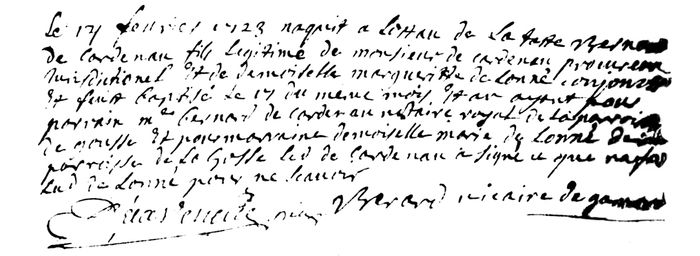 Le 14 fevrier 1723 naquit a lestau de La taste Bernard
de Cardenau fils legitime de monsieur de cardenau procureur
Jurisdictionel Et de demoiselle margueritte de Lonné conjoints
Et feust baptisé Le 17 du meme mois Et an ayant pour
parrain me bernard de Cardenau notaire royal de la parroisse
de mousse Et pour marraine demoiselle marie de Lonné de
parroisse de La Gosse Led de Cardenau a signé ce que na fait
Lad de Lonné pour ne scavoir
Berard vicaire de gamar